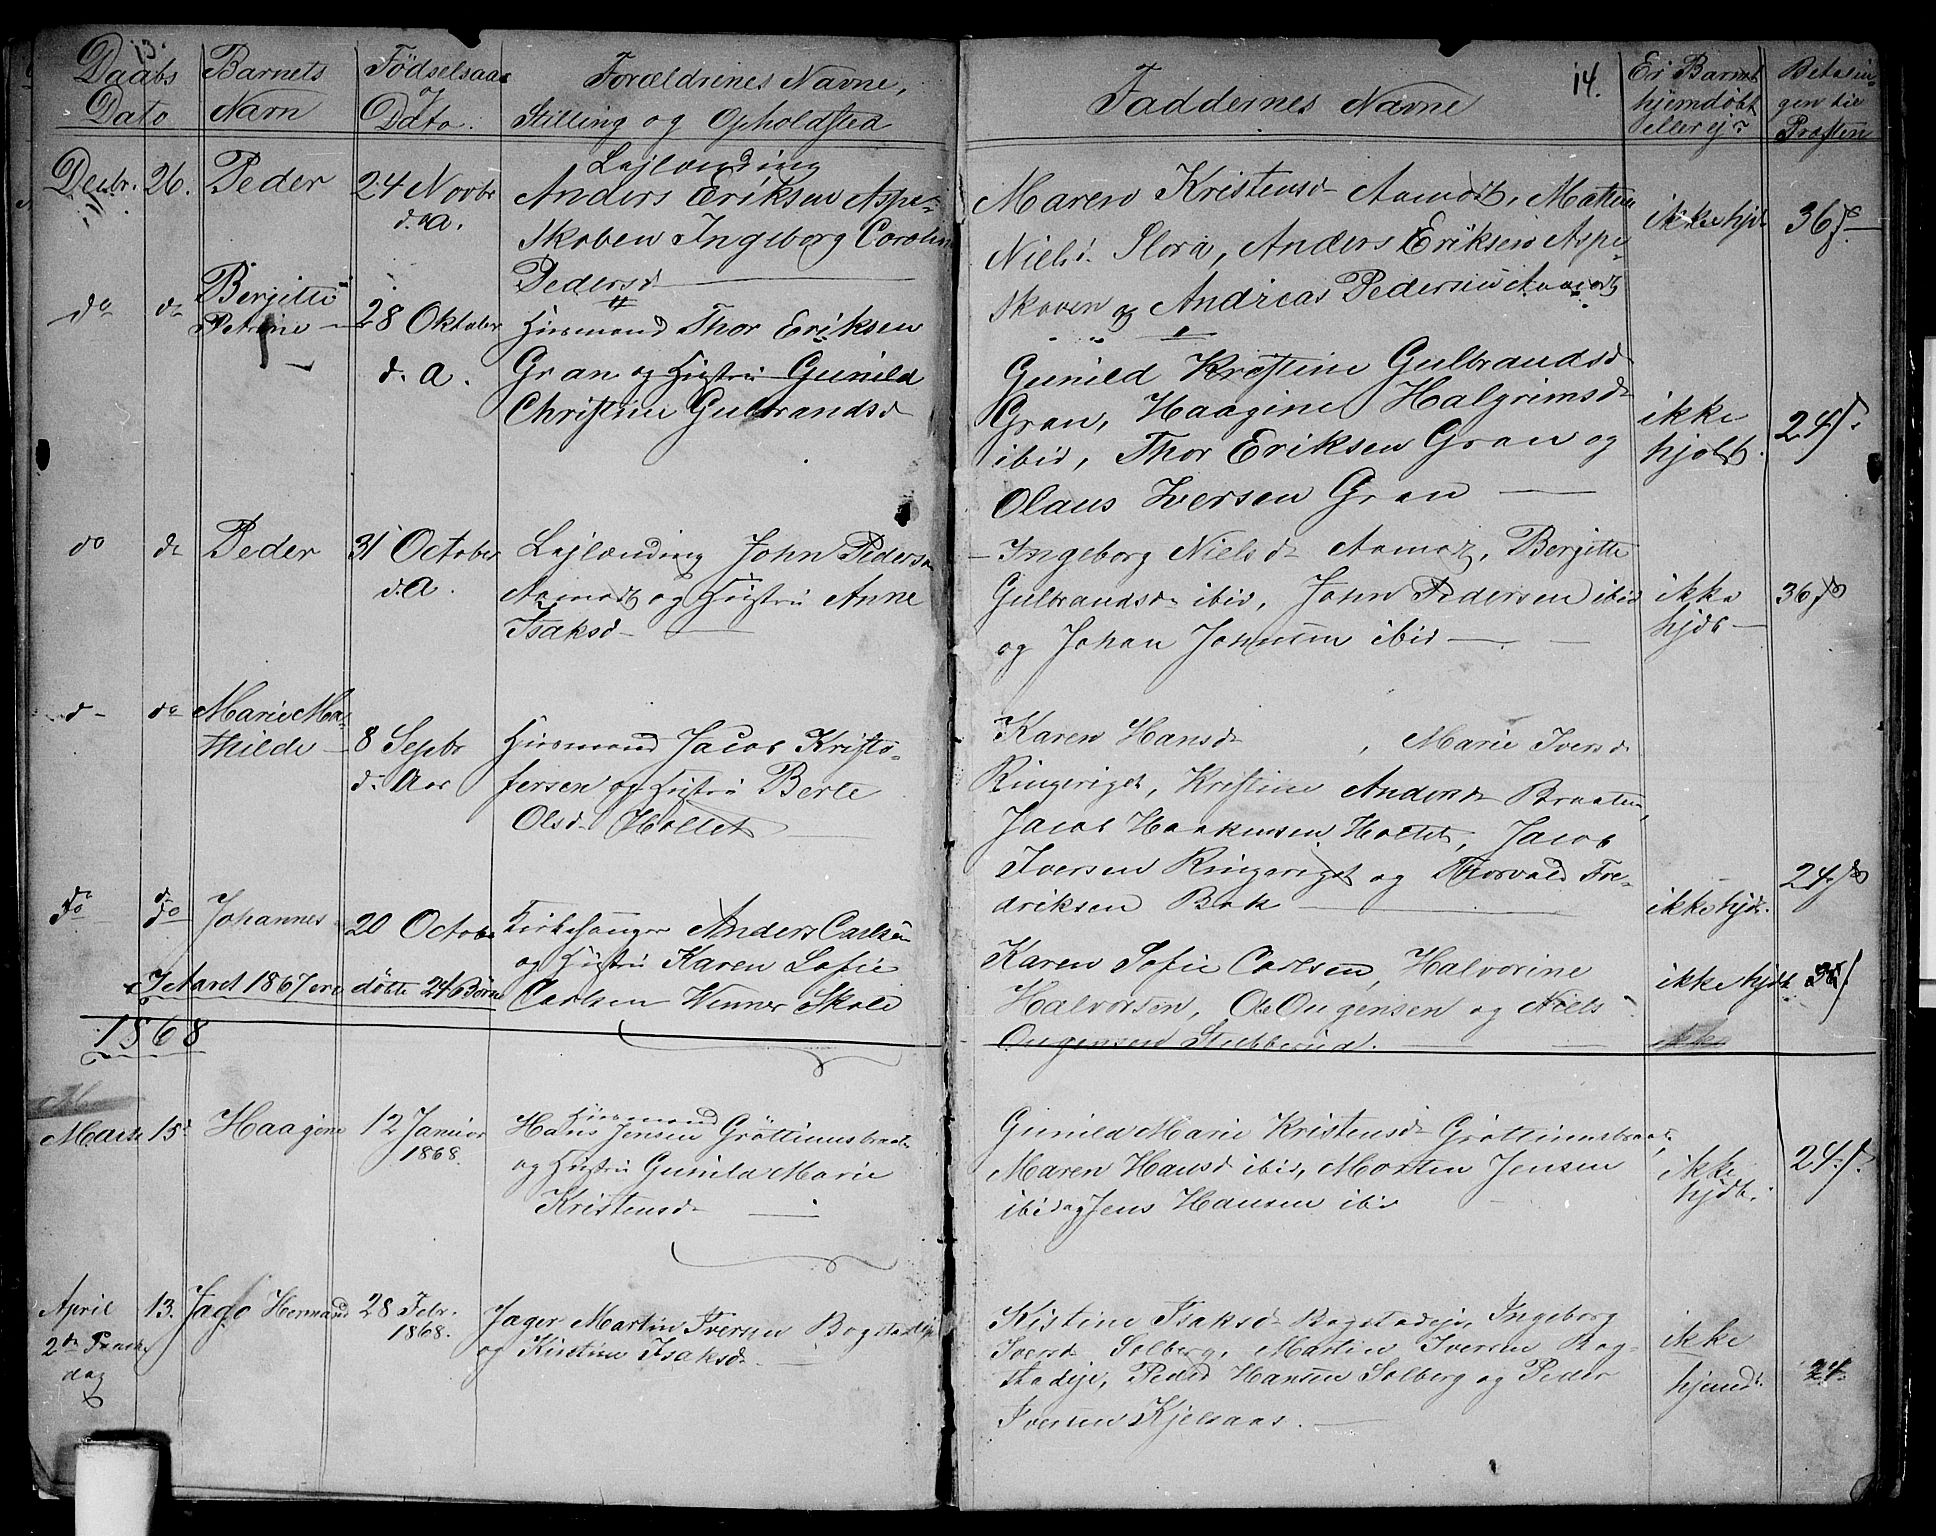 13.
Daabs Dato
Barnets Navn
Födselsaar & Dato.
Forældrenes Navne, Stilling og Opholdsted
Decbr. 26. Peder
24 Novbr d. a.
Lejlænding
Anders Eriksen Aspe-
skoven Ingeborg Caroline
Pedersd
do do Bergitte
Petrine
28 Oktober
d. A.
Huusmand Thor Eriksen
Gran og Hustru Gunild
Christine Gulbrandsd
do do Peder
31 October
d. A.
Lejlænding John Pedersen
Aamodt og Hustru Anne
Isaksd
d do Marie Ma-
thilde
8 Septbr
d. Aar
Huusmand Jacob Kristo-
fersen og Hustru Berte
Olsd. Holtet
do do Johannes
20 Octobr
Kirkesanger Anders Carlsen
og Hustru Karen Sofie
Carlsen Wenner Skole
I Aaret 1867 ere döbte 24 Börn
1868
Marts 15 Haagine
12 Januar
1868.
Huusmand
Hans Jensen Gröttumsbraat.
og Hustru Gunild Marie
Kristensd
April 13. Jago Hermand
2den Paaske
dag
28 Febr.
1868.
Jæger Martin Iversen Bogstadeje
og Kirstine Isaksd.
14.
Faddernes Navne
Er Barnet
hjemdöbt
eller ej?
Betalin-
gen til
Præsten
Maren Kristensd Aamodt, Mathea
Nielsd. Slora, Anders Eriksen Aspe-
skoven og Andreas Pedersen Aamodt
ikke hjd.
36 s
Gunild Kristine Gulbrandsd
Gran, Haagine Halgrimsd
ibid, Thor Eriksen Gran og
Olaus Iversen Gran
ikke
hjdbt.
24 s.
Ingeborg Nielsd Aamodt, Bergitte
Gulbrandsd ibid, John Pedersen ibid
og Johan Johnsen ibid
ikke
hjdb
36 s
Karen Hansd , Marie Iversd
Ringeriget, Kristine Andersd Braaten,
Jacob Haakensen Holtet, Jacob
Iversen Ringeriget og Thorvald Fre-
driksen Bak
ikke hjd.
24 s
Karen Sofie Carlsen, Halvorine
Halvorsen, Ole Ougensen og Niels
Ougensen Stubberud.
ikke hjdb.
36 s
Gunild Marie Kristensd Gröttumsbraat.,
Maren Hansd ibid, Morten Jensen
ibid og Jens Hansen ibid
ikke
hjdb.
24 s.
Kistine Isaksd Bogstadeje, Ingeborg
Iversd Solberg, Martin Iversen Bog-
stadeje, Peder Hansen Solberg og Peder
Iversen Kjelsaas.
ikke
hjemd.
24